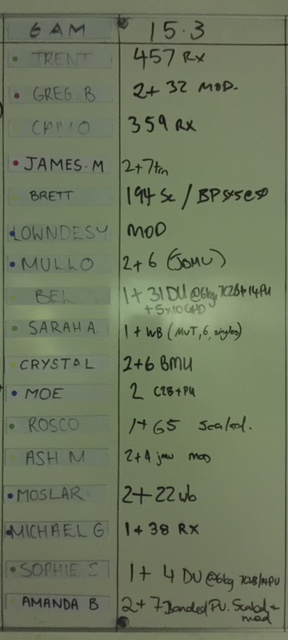 6 AM 15.3
TRENT 457 Rx
GREG.B 2+32 MOD.
359 RX
JAMES.M 2+7
BRETT 194 Sc / BP
LOWNDESY MOD
MULLO 2+6
BEL 1+31 DU @6kg 7C2B+14PU
+5x10
SARAH A 1+WB (MUT, 6, singles)
CRYSTAL 2+6 BMU
MOE 2 C2B+PU
ROSCO 1+65 Scaled.
ASH M 2+4 mod
MOSLAR 2+22 wb
MICHAEL G 1+38 RX
SOPHIE S 1+4 DU @6kg 7C2B/14PU
AMANDA B 2+7 Banded/PU. Scaled+
mod